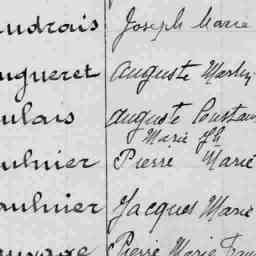 audrais Joseph Marie
ugueret Auguste Marie
ulais Auguste Constan
Marie Jh
ulnier Pierre Marie
aulnier Jacques Marie
Pierre Marie Fran